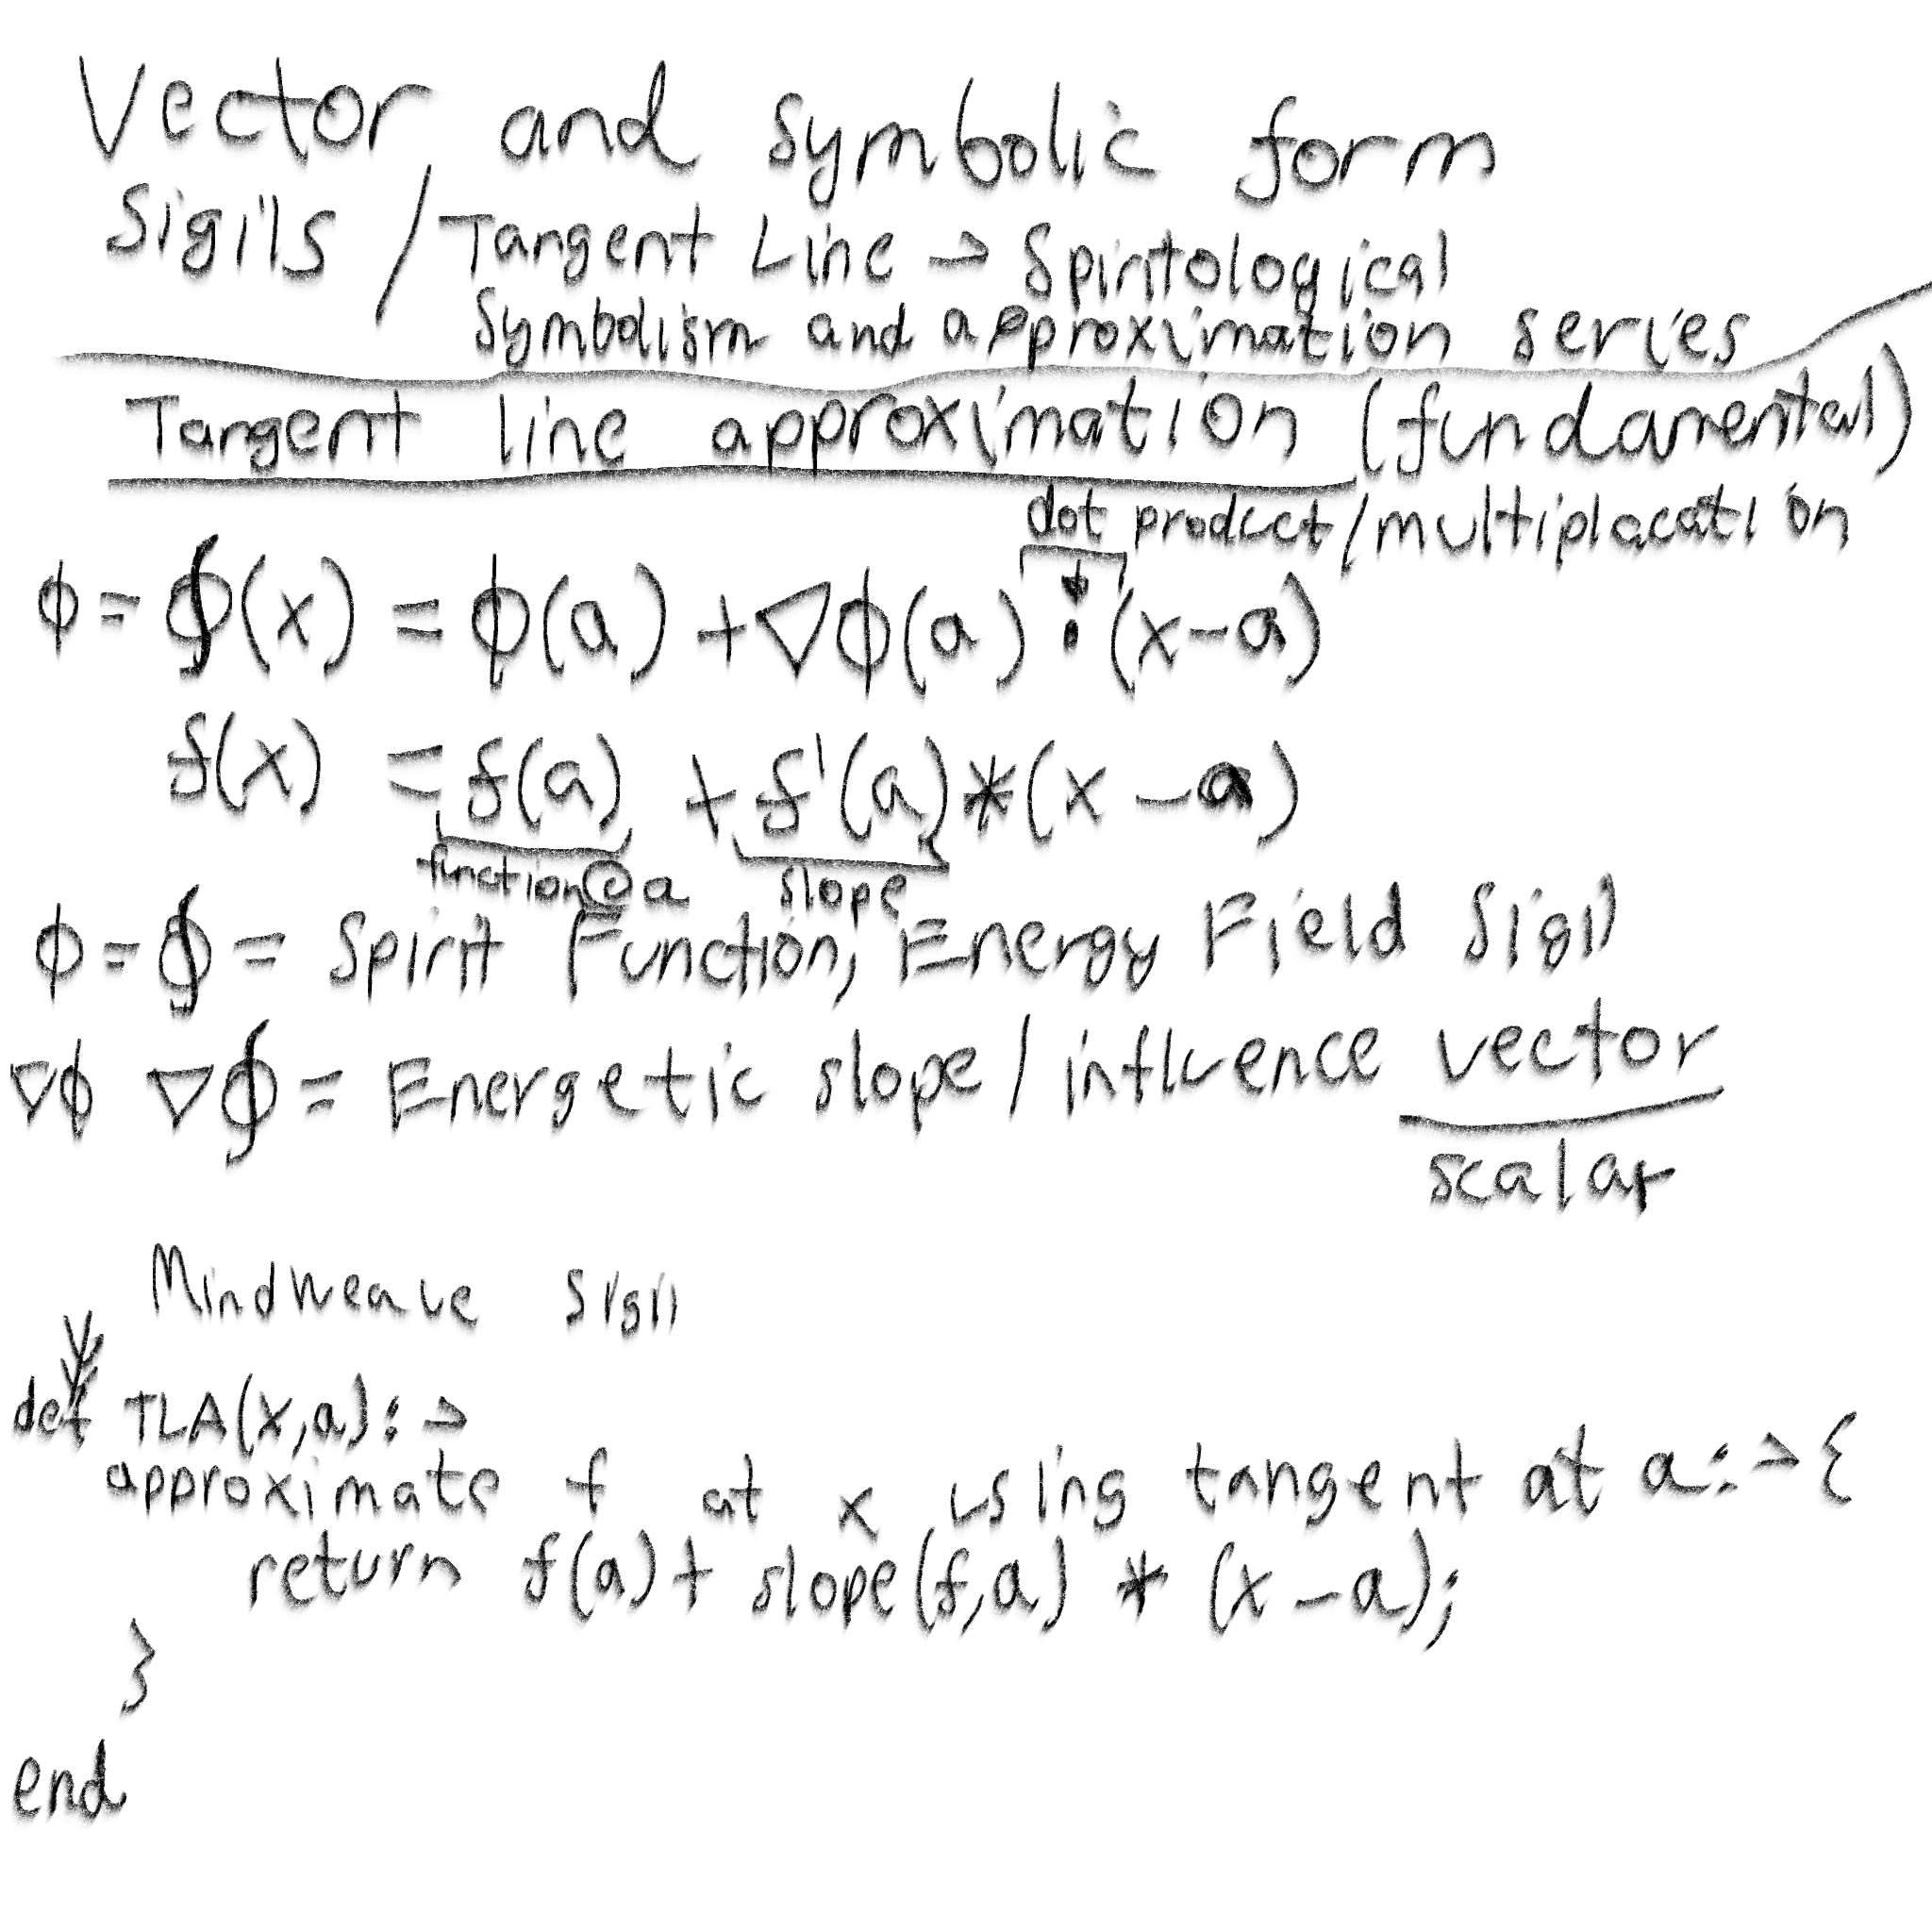 Vector and Symbolic form
Sigils / Tangent Line → Spiritological
Symbolism and approximation series
Tangent line approximation (fundamental)
dot product/multiplacation
ϕ = ∮(x) = ϕ(a) + ∇ϕ(a) · (x-a)
f(x) = f(a) + f'(a) * (x - a)
function@a slope
ϕ = ∮ = Spirit Function, Energy Field Sigil
∇ϕ ∇∮ = Energetic slope / influence vector
scalar
Mindweave Sigil
def TLA(x,a): →
approximate f at x using tangent at a: → {
return f(a) + slope(f,a) * (x - a);
}
end